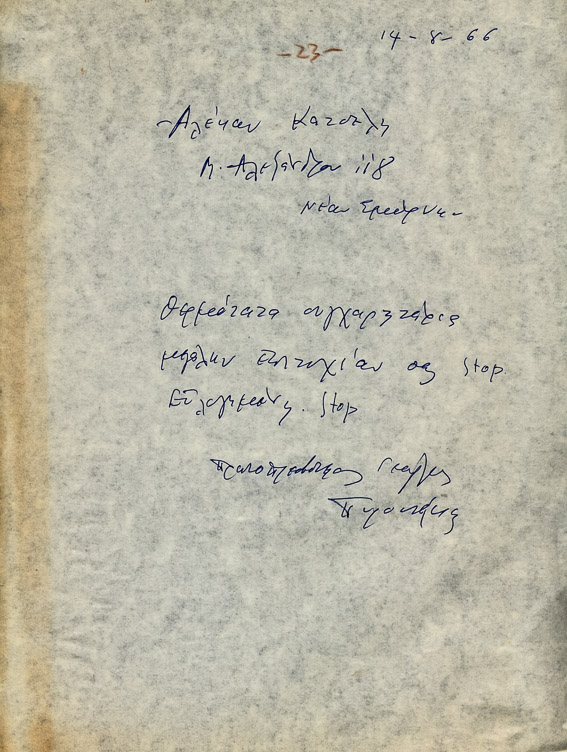 14-8-66
-23-
Αλέκον Κατσέλη
Μ. Αλεξάνδρου 118
Νέαν Σμύρνην
Θερμότατα συγχαρητήρια
μεγάλην επιτυχίαν σας stop
Ευλογημένη. stop
Πρωτοπρεσβύτερος Γεώργιος
Πυρουνάκης